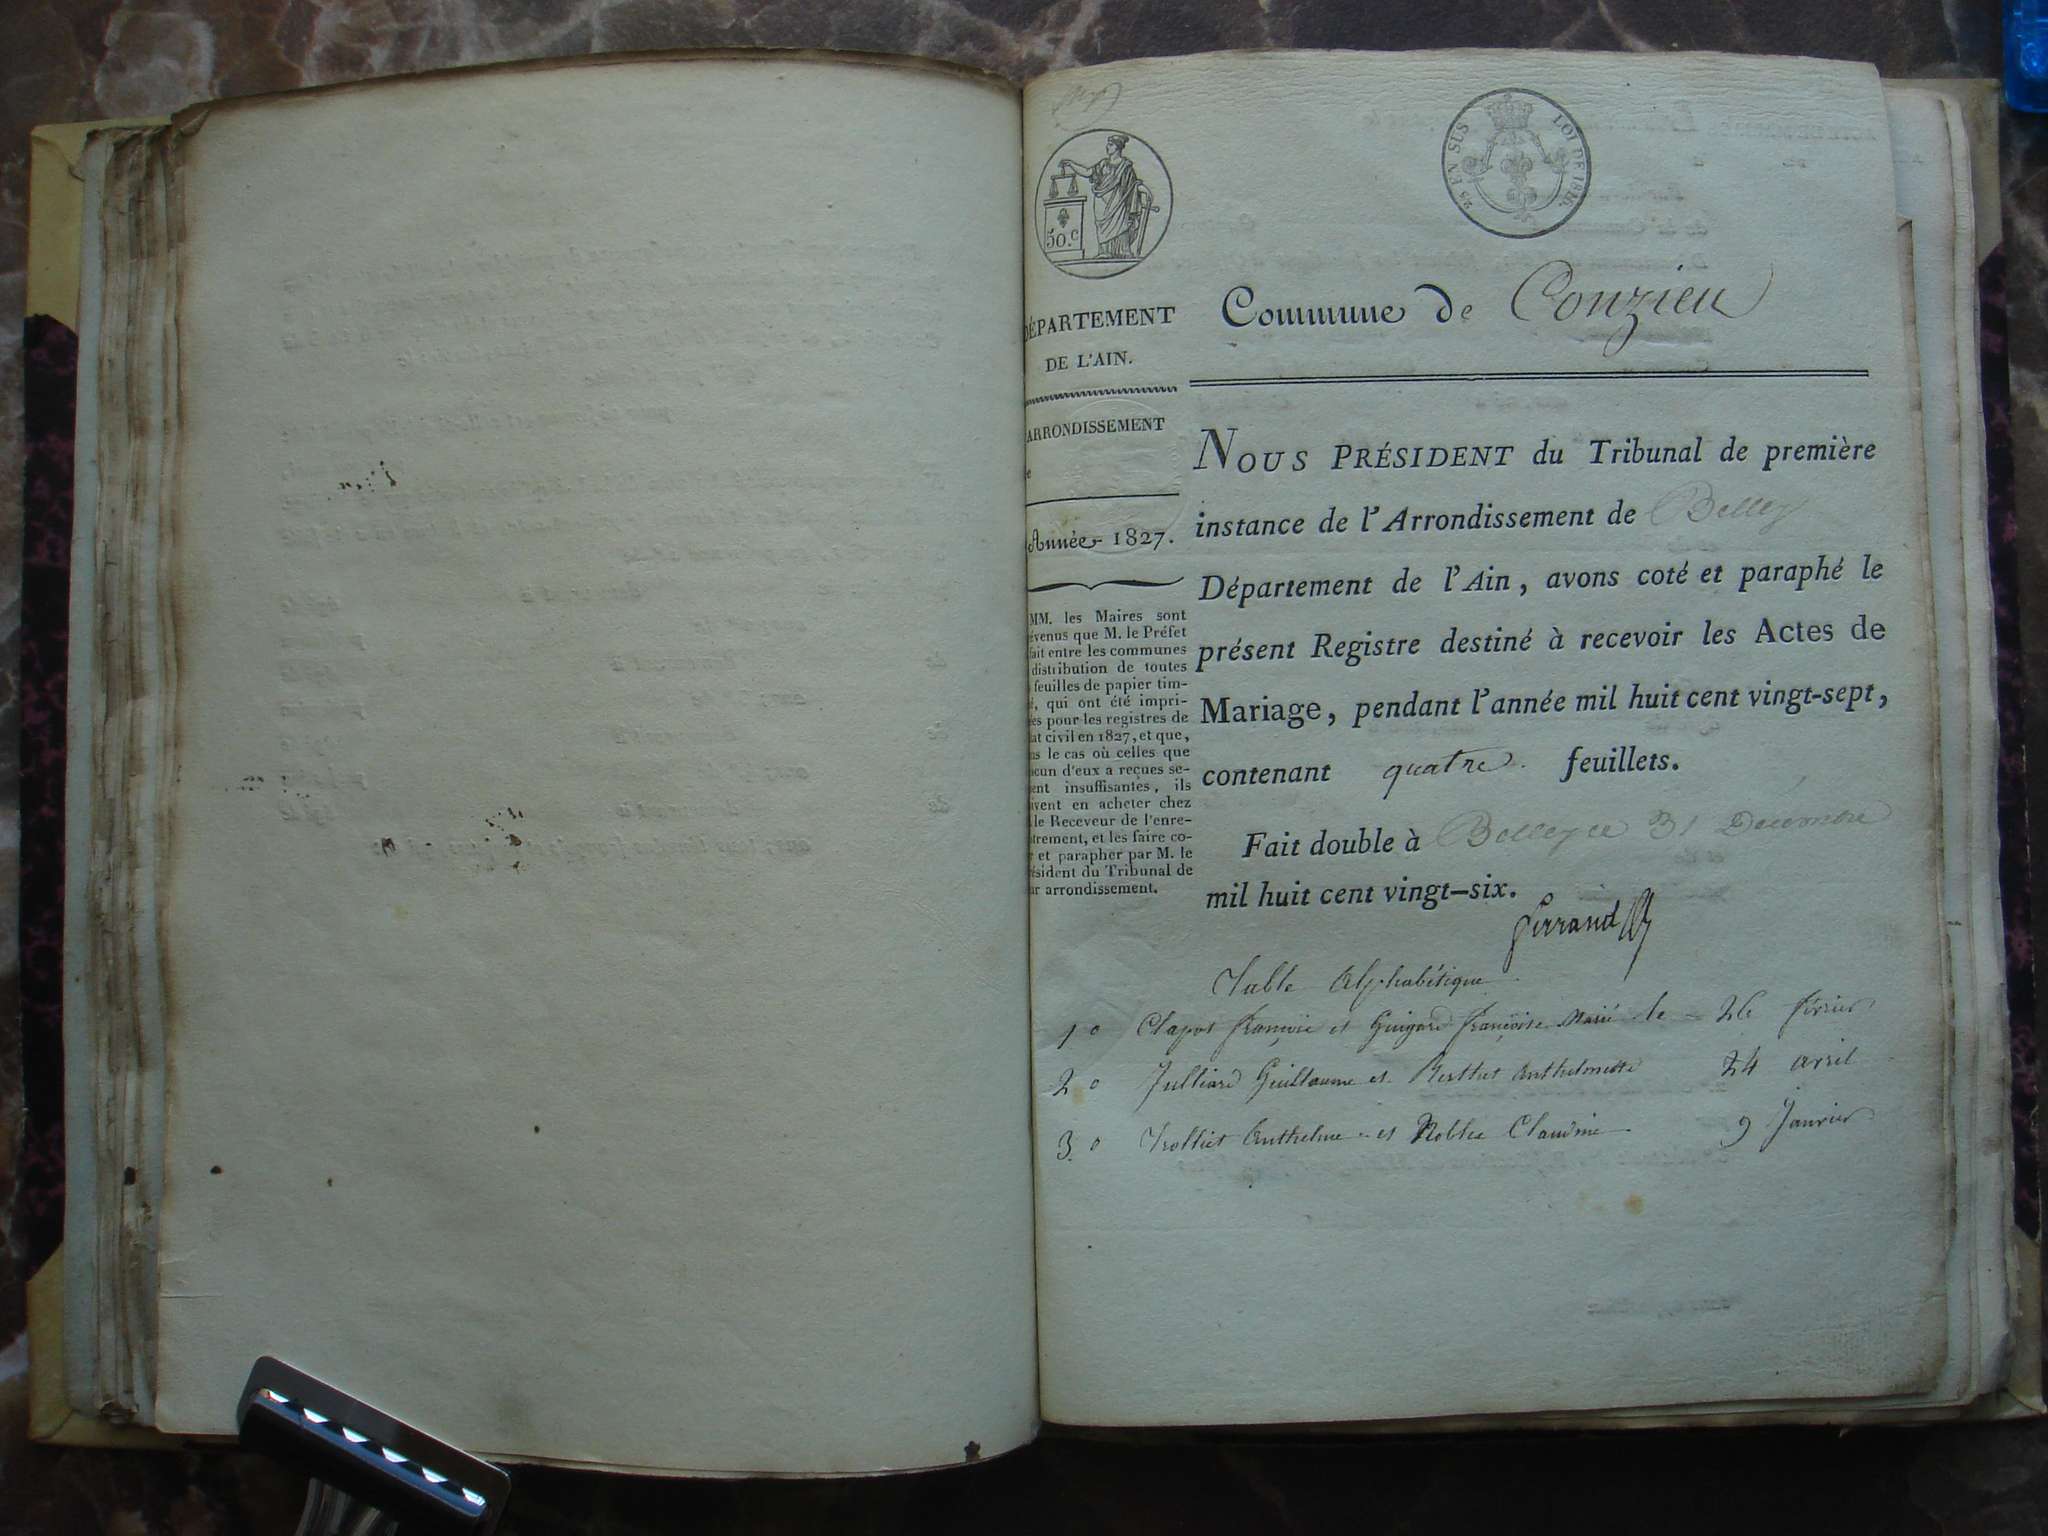 50.c
25 EN SUS LOI DE 1816.
DÉPARTEMENT
DE L'AIN.
ARRONDISSEMENT
Année 1827.
MM. les Maires sont
évenus que M. le Préfet
fait entre les communes
distribution de toutes
feuilles de papier tim-
é, qui ont été impri-
es pour les registres de
at civil en 1827, et que,
ns le cas où celles que
acun d'eux a reçues se-
ent insuffisantes, ils
ivent en acheter chez
le Receveur de l'enre-
trement, et les faire co-
r et parapher par M. le
ésident du Tribunal de
ur arrondissement.
Commune de Conzieu
NOUS PRÉSIDENT du Tribunal de première
instance de l'Arrondissement de Belley
Département de l'Ain, avons coté et paraphé le
présent Registre destiné à recevoir les Actes de
Mariage, pendant l'année mil huit cent vingt-sept,
contenant quatre feuillets.
Fait double à Belley ce 31 Décembre
mil huit cent vingt-six.
Ferrand
Table Alphabétique
1o Clapot François et Guigard Françoise Marié le 26 février
2o Julliard Guillaume et Berthet Anthelmette 24 avril
3o Trolliet Anthelme et Noblee Claudine 9 Janvier